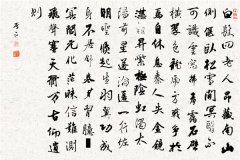 白髮四老人昂藏南山
側偃臥松雪間冥翳不
可識雲窗拂青靄石壁
橫翠色龍虎方戰爭於
焉自休息秦人失金鏡
漢祖昇紫極陰虹濁太
陽前星遂淪匿一行佐
明聖倏起生羽翼功成
身不居舒卷在胸臆
窅冥合元化茫昧信難測
飛聲塞天衢萬古仰遺
則